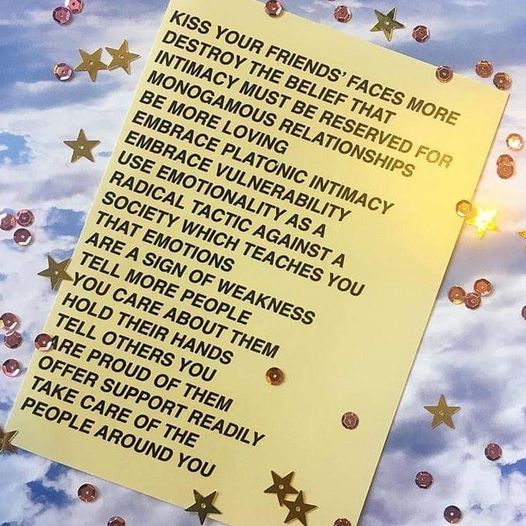 KISS YOUR FRIENDS' FACES MORE
DESTROY THE BELIEF THAT
INTIMACY MUST BE RESERVED FOR
MONOGAMOUS RELATIONSHIPS
BE MORE LOVING
EMBRACE PLATONIC INTIMACY
EMBRACE VULNERABILITY
USE EMOTIONALITY AS A
RADICAL TACTIC AGAINST A
SOCIETY WHICH TEACHES YOU
THAT EMOTIONS
ARE A SIGN OF WEAKNESS
TELL MORE PEOPLE
YOU CARE ABOUT THEM
HOLD THEIR HANDS
TELL OTHERS YOU
ARE PROUD OF THEM
OFFER SUPPORT READILY
TAKE CARE OF THE
PEOPLE AROUND YOU